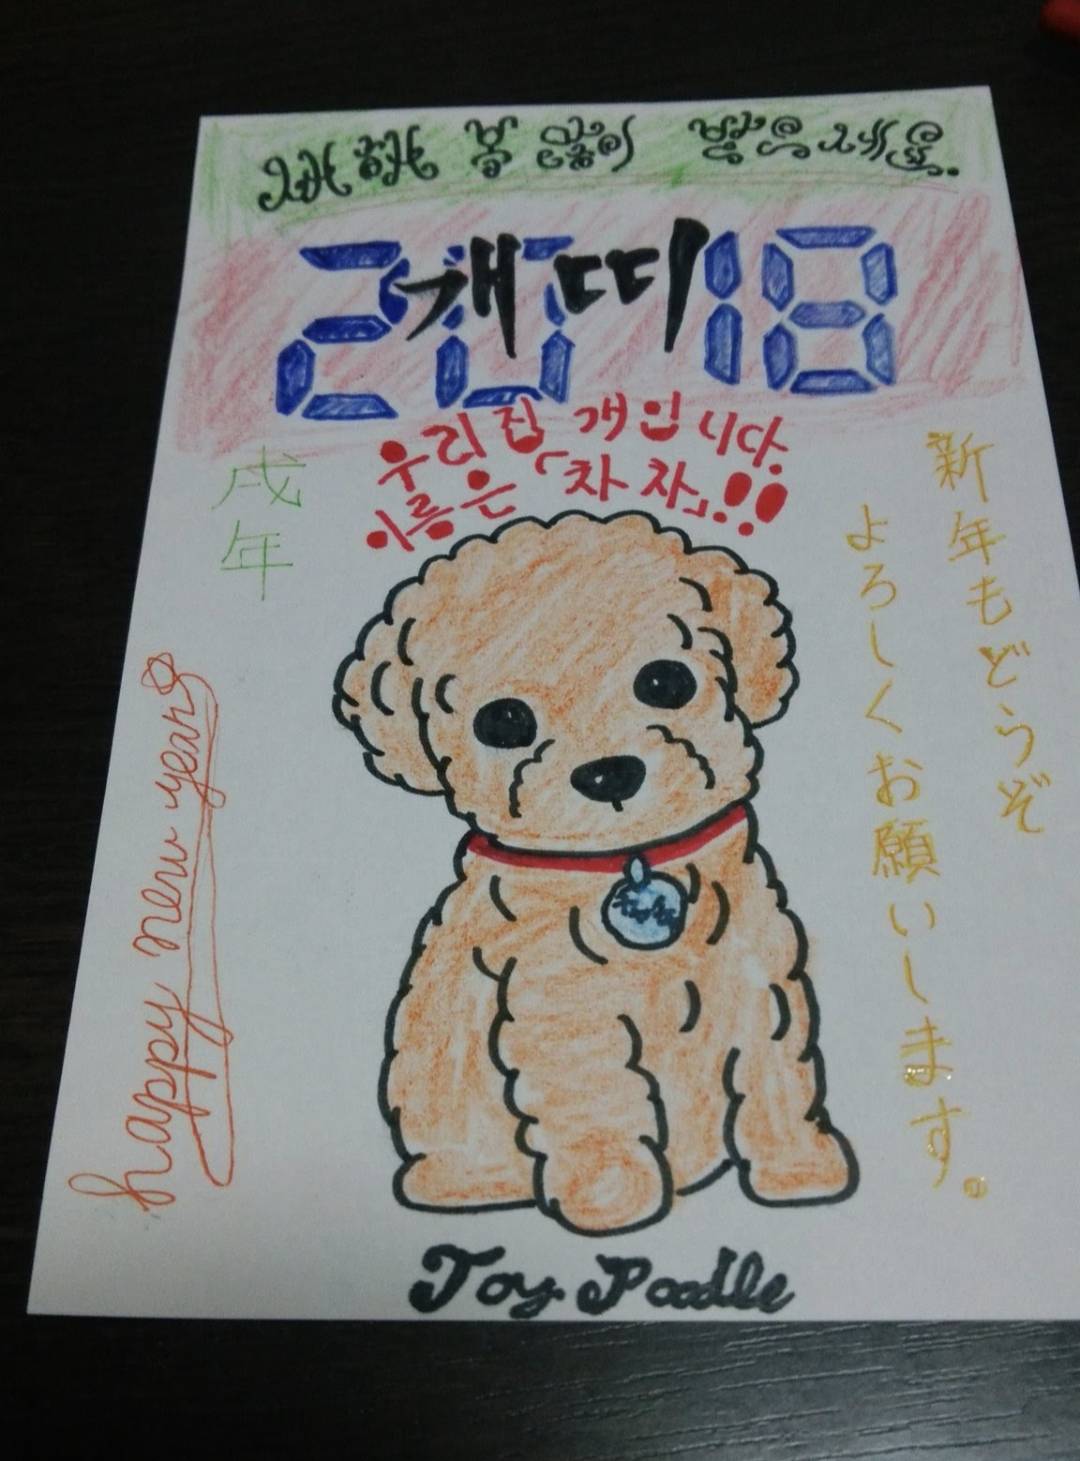 새해 복 많이 받으세요.
2018
개띠
우리집 개입니다.
이름은 「차차」!!
戌年
新年もどうぞ
よろしくお願いします。
happy new year
Toy Poodle